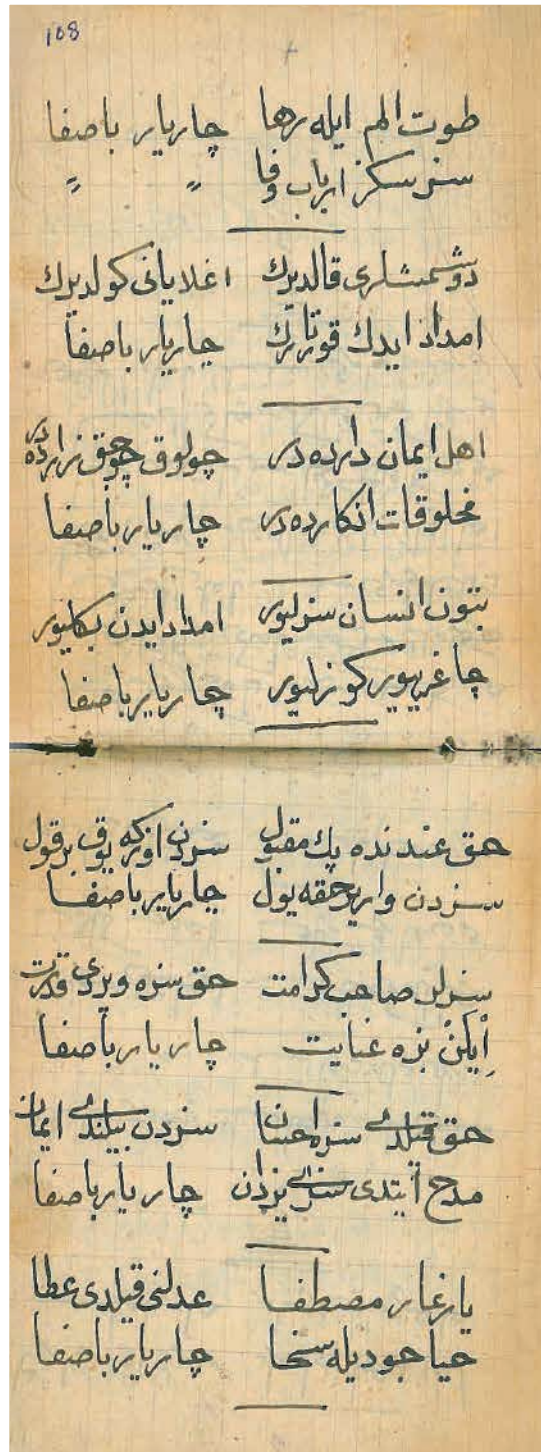 108
طوت الم ايله رها چاريار باصفا
سزسكز ارباب وفا " "
دوشمشلرى قالديرك اغلايانى كولديرك
امداد ايدك قورتارك چاريار باصفا
اهل ايمان داردەدر چولوق چوجق زاردەدر
مخلوقات انكاردەدر چاريار باصفا
بتون انسان سزليور امداد ايدن بكليور
چاغرييور كوزليور چاريار باصفا
حق عندنده پك مقبول سزدن اوزكه يوق بر قول
سزدن وارير حقه يول چاريار باصفا
سزلر صاحب كرامت حق سزه ويردى قدرت
ايلكز بزه عنايت چاريار باصفا
حق قيلدى سزه احسان سزدن بيلندى ايمان
مدح ايتدى سزى يزدان چاريار باصفا
يار غار مصطفا عدلنى قيلدى عطا
حيا جود يله سخا چاريار باصفا